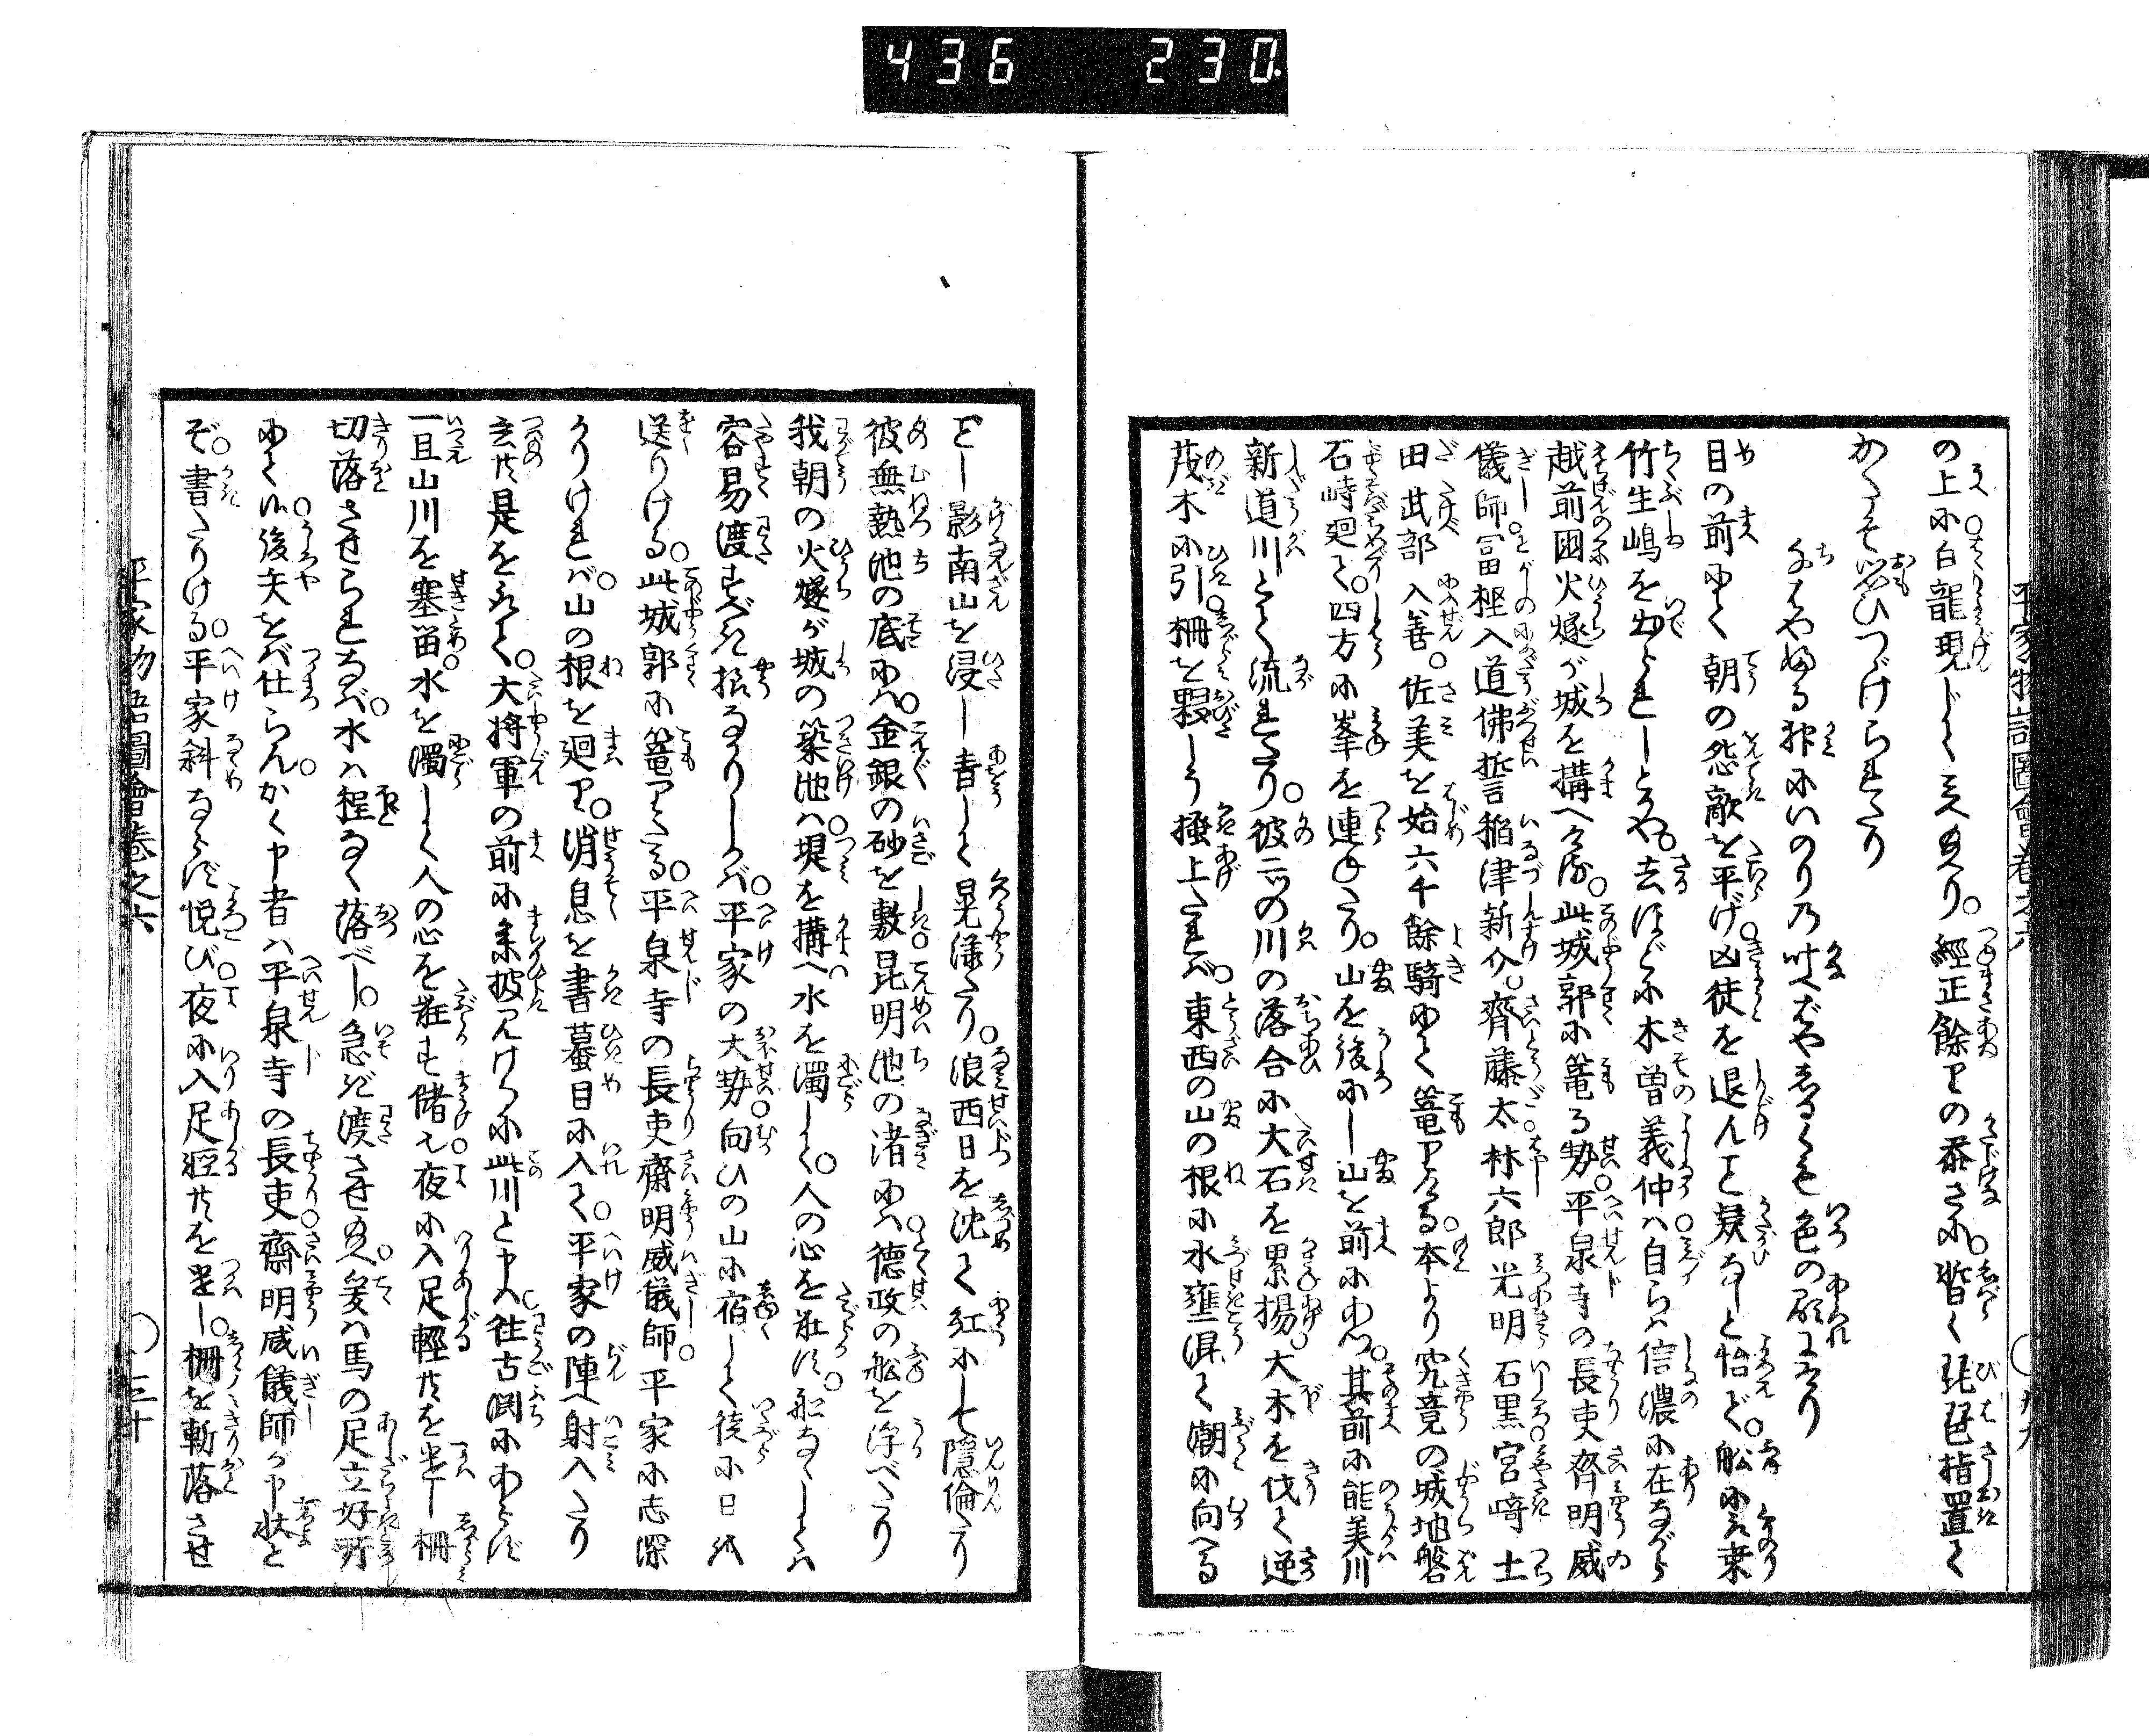 436 230
平家物語圖會卷之六 ○廿九
の上に白龍現じて見へ給へり。經正餘りの忝さに。暫く琵琶指置て
かくぞ思ひつゞけられたり
ちはやふる神にいのりの叶へばやしるくも色の顕はれにけり
目の前にて朝の怨敵を平げ。凶徒を退ん事疑なしと怡ど。舩に乗
竹生嶋を出られしとかや。去ほどに木曽義仲ハ自らハ信濃に在ながら
越前国火燧が城を構へける。此城郭に篭る勢。平泉寺の長吏齊明威
儀師。冨樫入道佛誓稲津新介。齊藤太。林六郎光明石黒宮﨑土
田武部入善。佐美を始六千餘騎にて篭りける。本より究竟の城地盤
石峙廻て。四方に峯を連ねたり。山を後にし山を前にあつ。其前に能美川
新道川とて流れたり。彼二ツの川の落合に大石を累揚。大木を伐て逆
茂木に引柵を夥しう掻上たれバ。東西の山の根に水壅湛て潮に向へる
ごとし影南山を浸し青して晃漾たり。浪西日を沈て紅にして隠倫たり
彼無熱池の底にハ。金銀の砂を敷昆明池の渚にハ。德政の舩を浮べたり
我朝の火燧が城の築池ハ。堤を構へ水を濁して。人の心を誑す。舩なくしてハ
容易渡すべき様なかりしかバ。平家の大勢向ひの山に宿して徒に日を
送りける。此城郭に篭りたる。平泉寺の長吏齋明威儀師。平家に志深
かりけれバ。山の根を廻り。消息を書蟇目に入て。平家の陣へ射入たり
兵共是を取て。大將軍の前に参披見けるに此川と申ハ往古渕にあらず
一旦山川を塞畄。水を濁して人の心を誑す儲也夜に入足輕共を遣し柵
切落させられなバ。水ハ程なく落べし。急ぎ渡させ給へ。爰ハ馬の足立好所
にて候後矢をバ仕らん。かく申者ハ平泉寺の長吏。齋明威儀師が申状と
ぞ。書たりける。平家斜ならず悦び。夜に入足軽共を遣し。柵を斬落させ
平家物語圖會卷之六 ○三十